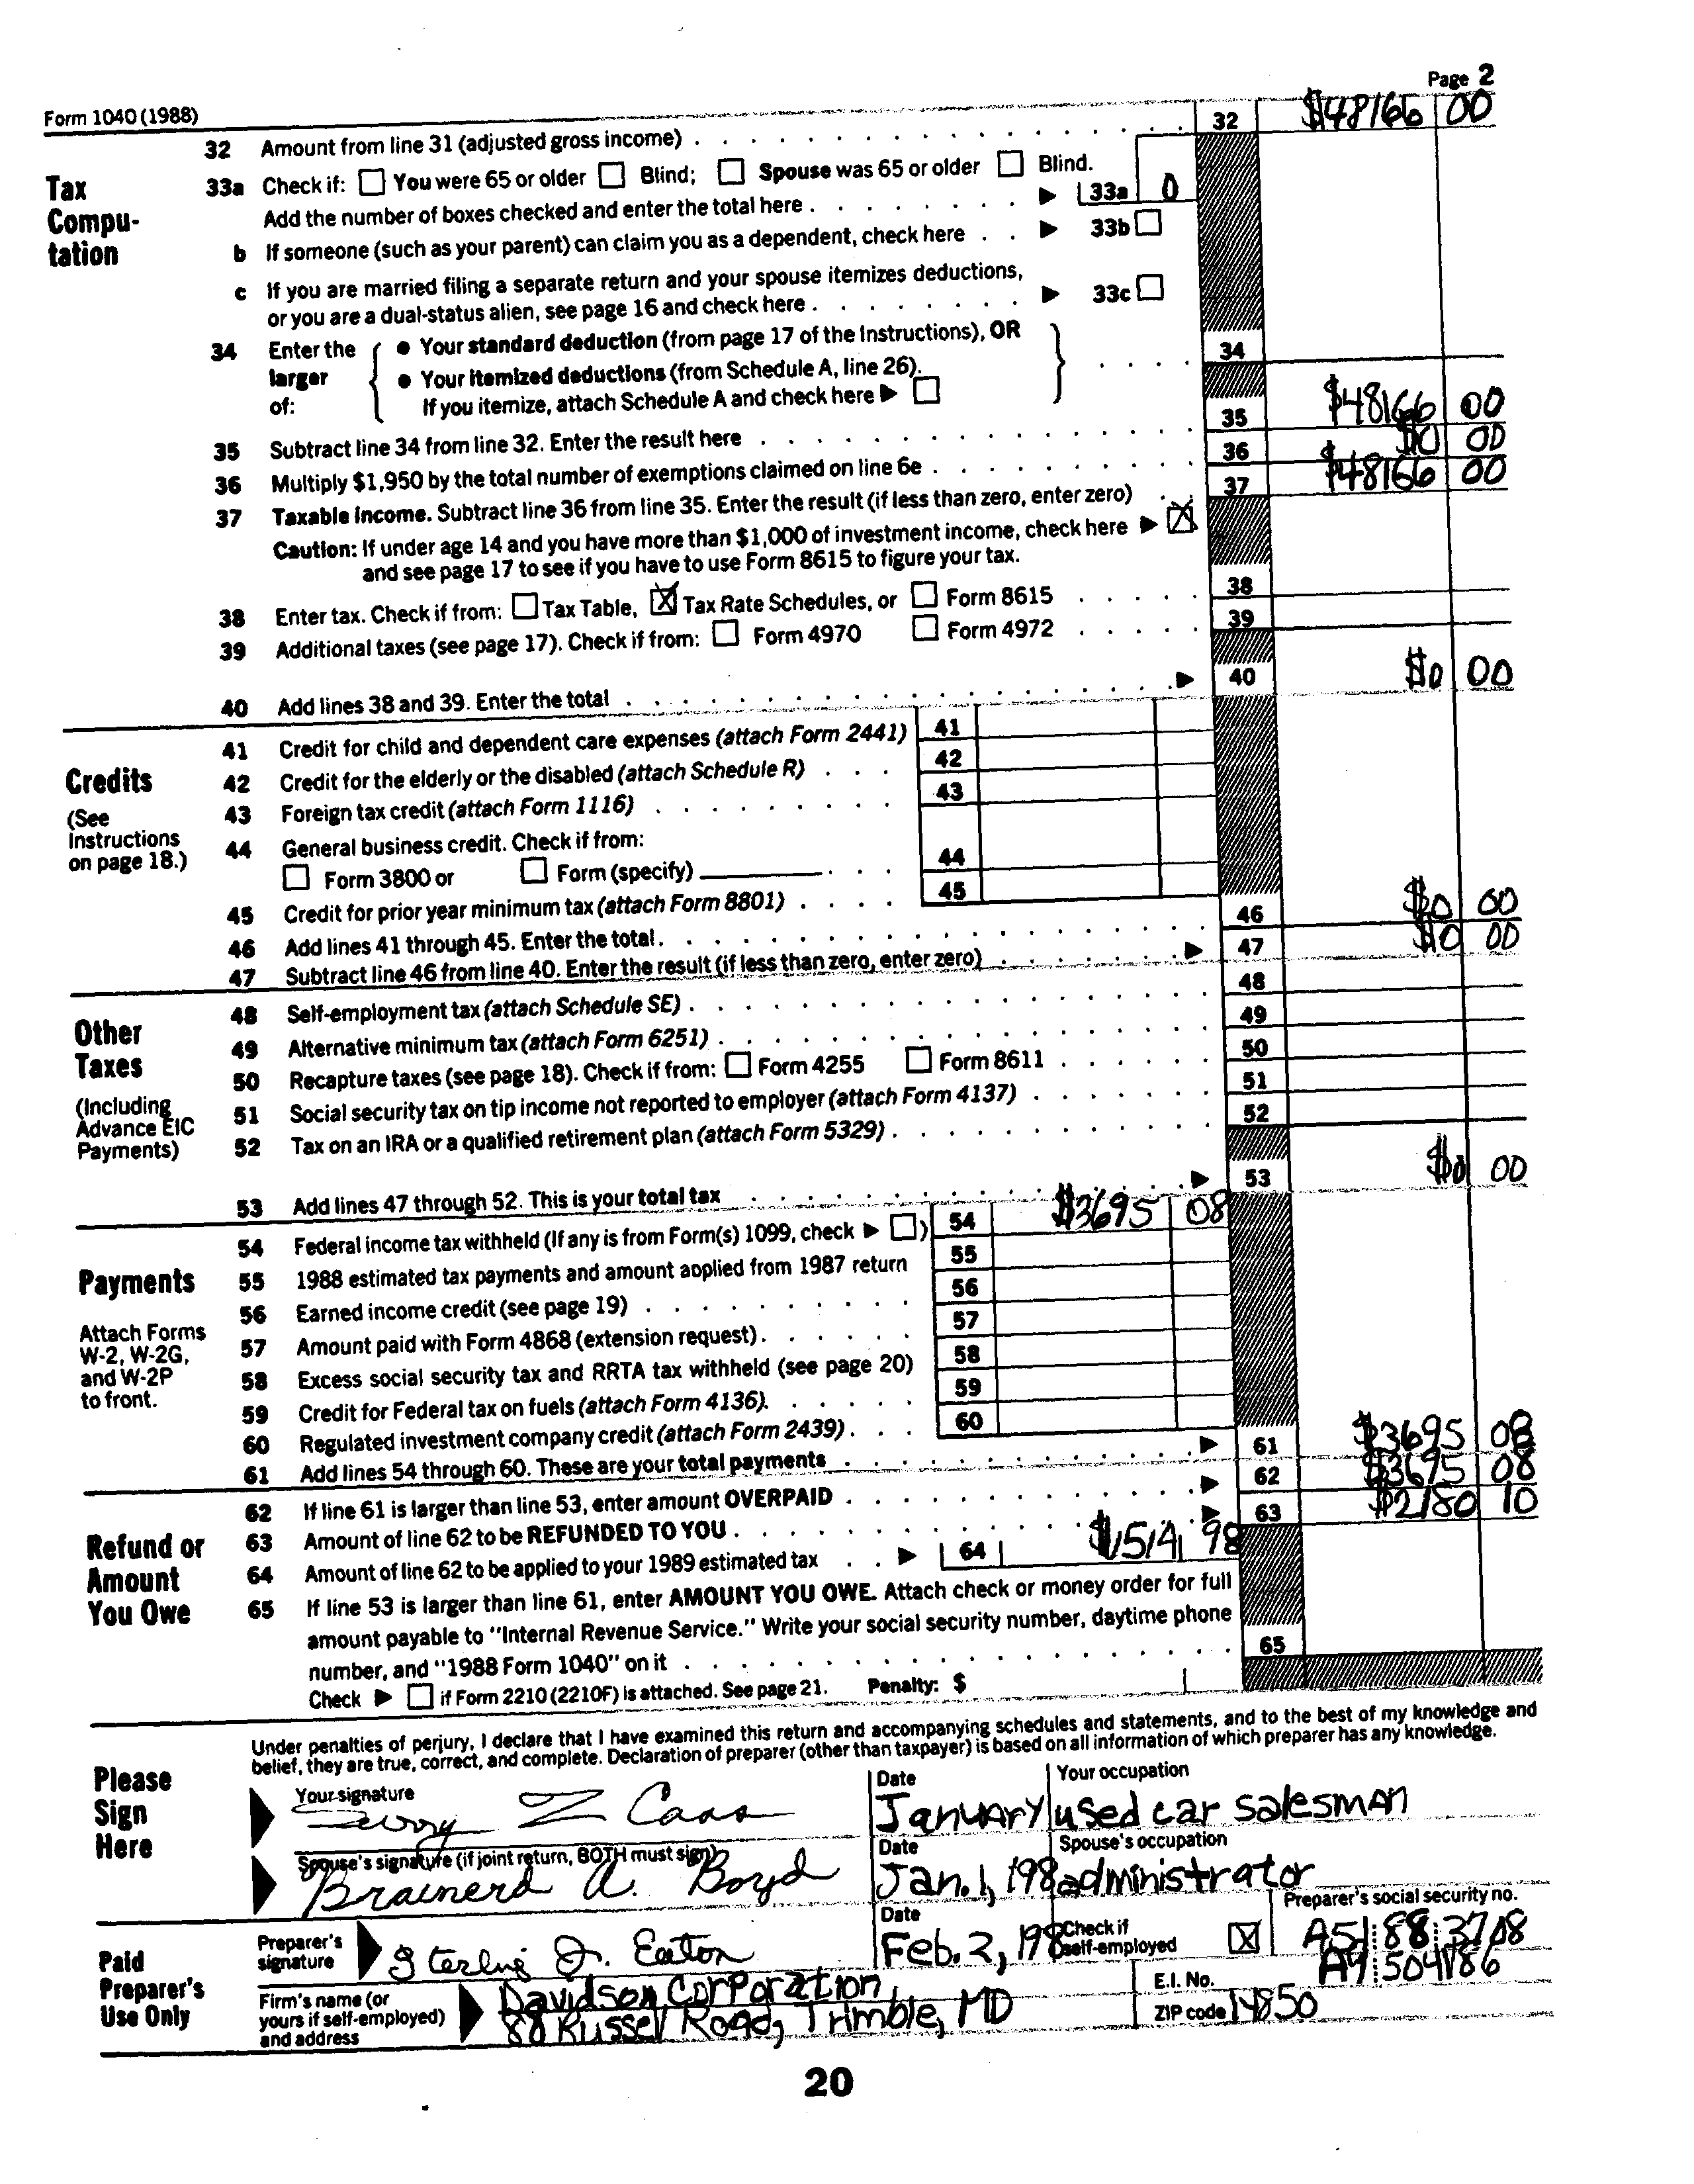 Page 2
Form 1040 (1988)
32 Amount from line 31 (adjusted gross income) 32 $48166 00
Tax Compu-tation
33a Check if: You were 65 or older Blind; Spouse was 65 or older Blind.
Add the number of boxes checked and enter the total here 33a 0
b If someone (such as your parent) can claim you as a dependent, check here 33b
c If you are married filing a separate return and your spouse itemizes deductions,
or you are a dual-status alien, see page 16 and check here 33c
34 Enter the larger of: • Your standard deduction (from page 17 of the Instructions), OR 34
• Your itemized deductions (from Schedule A, line 26).
If you itemize, attach Schedule A and check here
35 Subtract line 34 from line 32. Enter the result here 35 $48166 00
36 Multiply $1,950 by the total number of exemptions claimed on line 6e 36 $0 00
37 Taxable income. Subtract line 36 from line 35. Enter the result (if less than zero, enter zero) 37 $48166 00
Caution: If under age 14 and you have more than $1,000 of investment income, check here
and see page 17 to see if you have to use Form 8615 to figure your tax.
38 Enter tax. Check if from: Tax Table, Tax Rate Schedules, or Form 8615 38
39 Additional taxes (see page 17). Check if from: Form 4970 Form 4972 39
40 Add lines 38 and 39. Enter the total 40 $0 00
Credits
(See Instructions on page 18.)
41 Credit for child and dependent care expenses (attach Form 2441) 41
42 Credit for the elderly or the disabled (attach Schedule R) 42
43 Foreign tax credit (attach Form 1116) 43
44 General business credit. Check if from:
Form 3800 or Form (specify) 44
45 Credit for prior year minimum tax (attach Form 8801) 45
46 Add lines 41 through 45. Enter the total. 46 $0 00
47 Subtract line 46 from line 40. Enter the result (if less than zero, enter zero) 47 $0 00
Other Taxes
(Including Advance EIC Payments)
48 Self-employment tax (attach Schedule SE) 48
49 Alternative minimum tax (attach Form 6251) 49
50 Recapture taxes (see page 18). Check if from: Form 4255 Form 8611 50
51 Social security tax on tip income not reported to employer (attach Form 4137) 51
52 Tax on an IRA or a qualified retirement plan (attach Form 5329) 52
53 Add lines 47 through 52. This is your total tax 53 $0 00
Payments
Attach Forms W-2, W-2G, and W-2P to front.
54 Federal income tax withheld (If any is from Form(s) 1099, check ) 54 $3695 08
55 1988 estimated tax payments and amount applied from 1987 return 55
56 Earned income credit (see page 19) 56
57 Amount paid with Form 4868 (extension request) 57
58 Excess social security tax and RRTA tax withheld (see page 20) 58
59 Credit for Federal tax on fuels (attach Form 4136). 59
60 Regulated investment company credit (attach Form 2439) 60
61 Add lines 54 through 60. These are your total payments 61 $3695 08
Refund or Amount You Owe
62 If line 61 is larger than line 53, enter amount OVERPAID 62 $3695 08
63 Amount of line 62 to be REFUNDED TO YOU 63 $2180 10
64 Amount of line 62 to be applied to your 1989 estimated tax 64 $1514 98
65 If line 53 is larger than line 61, enter AMOUNT YOU OWE. Attach check or money order for full
amount payable to "Internal Revenue Service." Write your social security number, daytime phone
number, and "1988 Form 1040" on it 65
Check if Form 2210 (2210F) is attached. See page 21. Penalty: $
Please Sign Here
Under penalties of perjury, I declare that I have examined this return and accompanying schedules and statements, and to the best of my knowledge and
belief, they are true, correct, and complete. Declaration of preparer (other than taxpayer) is based on all information of which preparer has any knowledge.
Your signature Date Your occupation
Z Caas January used car salesman
Spouse's signature (if joint return, BOTH must sign) Date Spouse's occupation
Brainerd A. Boyd Jan. 1, 198 administrator
Paid Preparer's Use Only
Preparer's signature Date Check if self-employed Preparer's social security no.
Sterling J. Eaton Feb. 2, 198 A51 88 3708
Firm's name (or yours if self-employed) and address
Davidson Corporation E.I. No. A9 504186
88 Russel Road, Trimble, MD ZIP code 14850
20